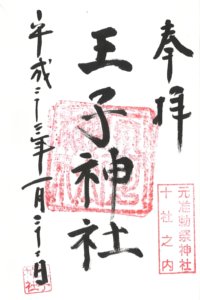 奉拝
元准勅祭神社
十社之内
王子神社
平成二十三年一月二十二日